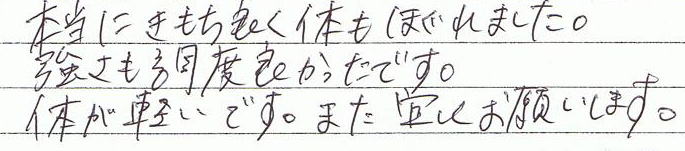 本当にきもち良く体もほぐれました。
強さも調度良かったです。
体が軽いです。また宜しくお願いします。